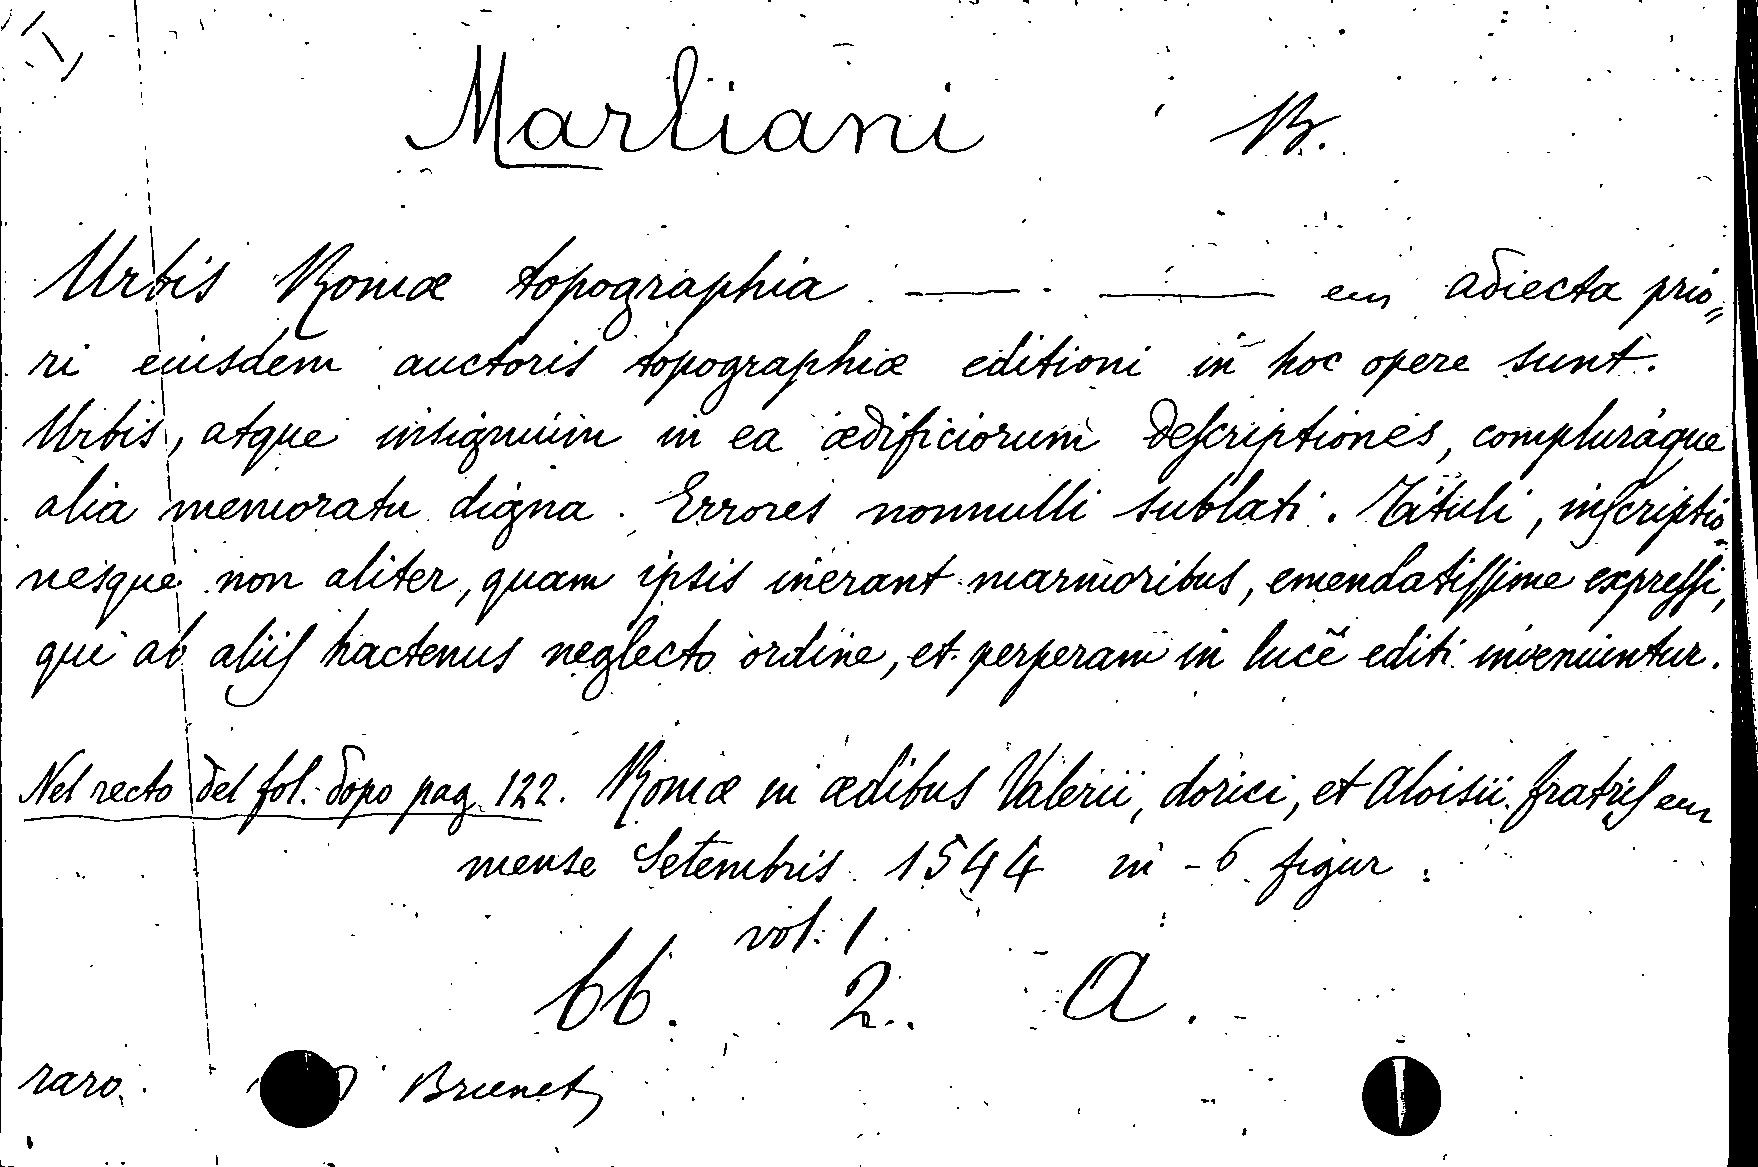 Marliani B.
Urbis Romæ topographia —— . —— em adiecta prio=
ri eiusdem auctoris topographiæ editioni in hoc opere sunt.
Urbis, atque insignium in ea ædificiorum deſcriptiones, compluráque
alia memoratu digna. Errores nonnulli sublati. Tituli, inſcriptio=
nesque non aliter, quam ipsis inerant marmoribus, emendatiſſime expreſſi,
qui ab aliiſ hactenus neglecto ordine, et perperam in lucẽ editi inveniuntur.
Nel recto del fol. dopo pag. 122. Romæ in ædibus Valerii, dorici, et Aloisii fratriſ em
mense Setembris 1544 in - 6 figur.
vol. 1
66. 2. A.
raro. Brunet